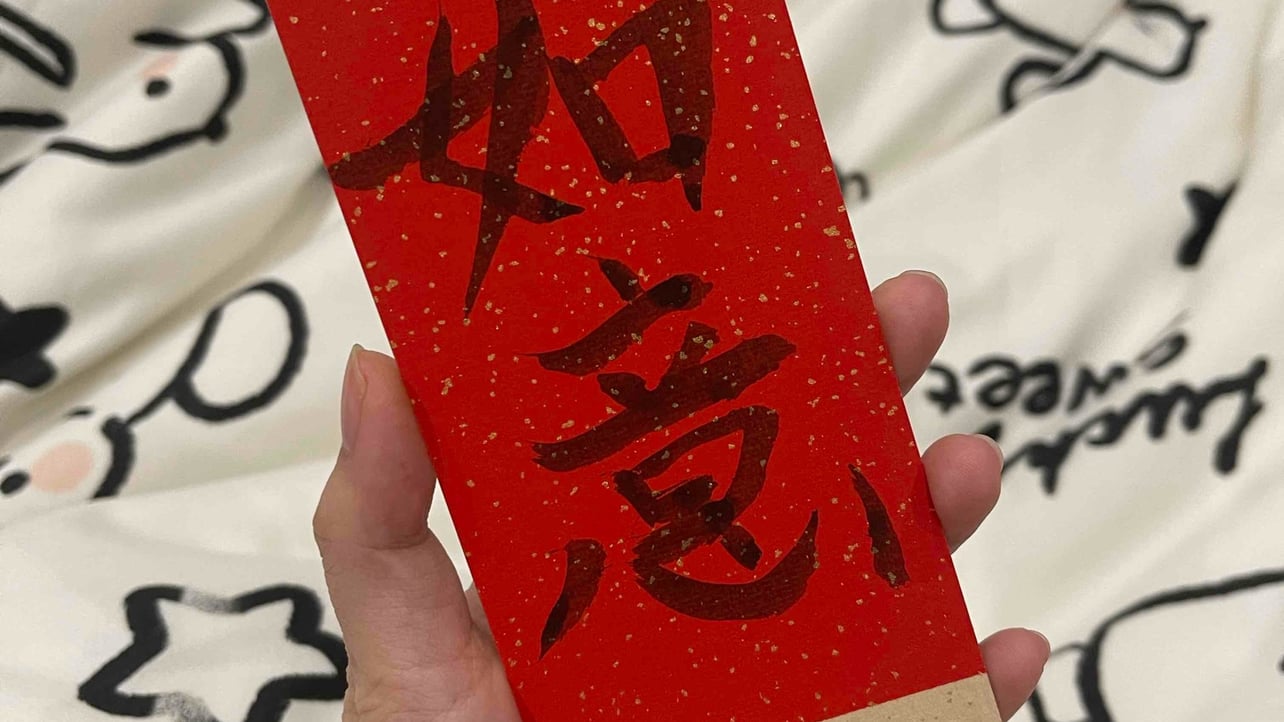 如意
Lucky
sweet